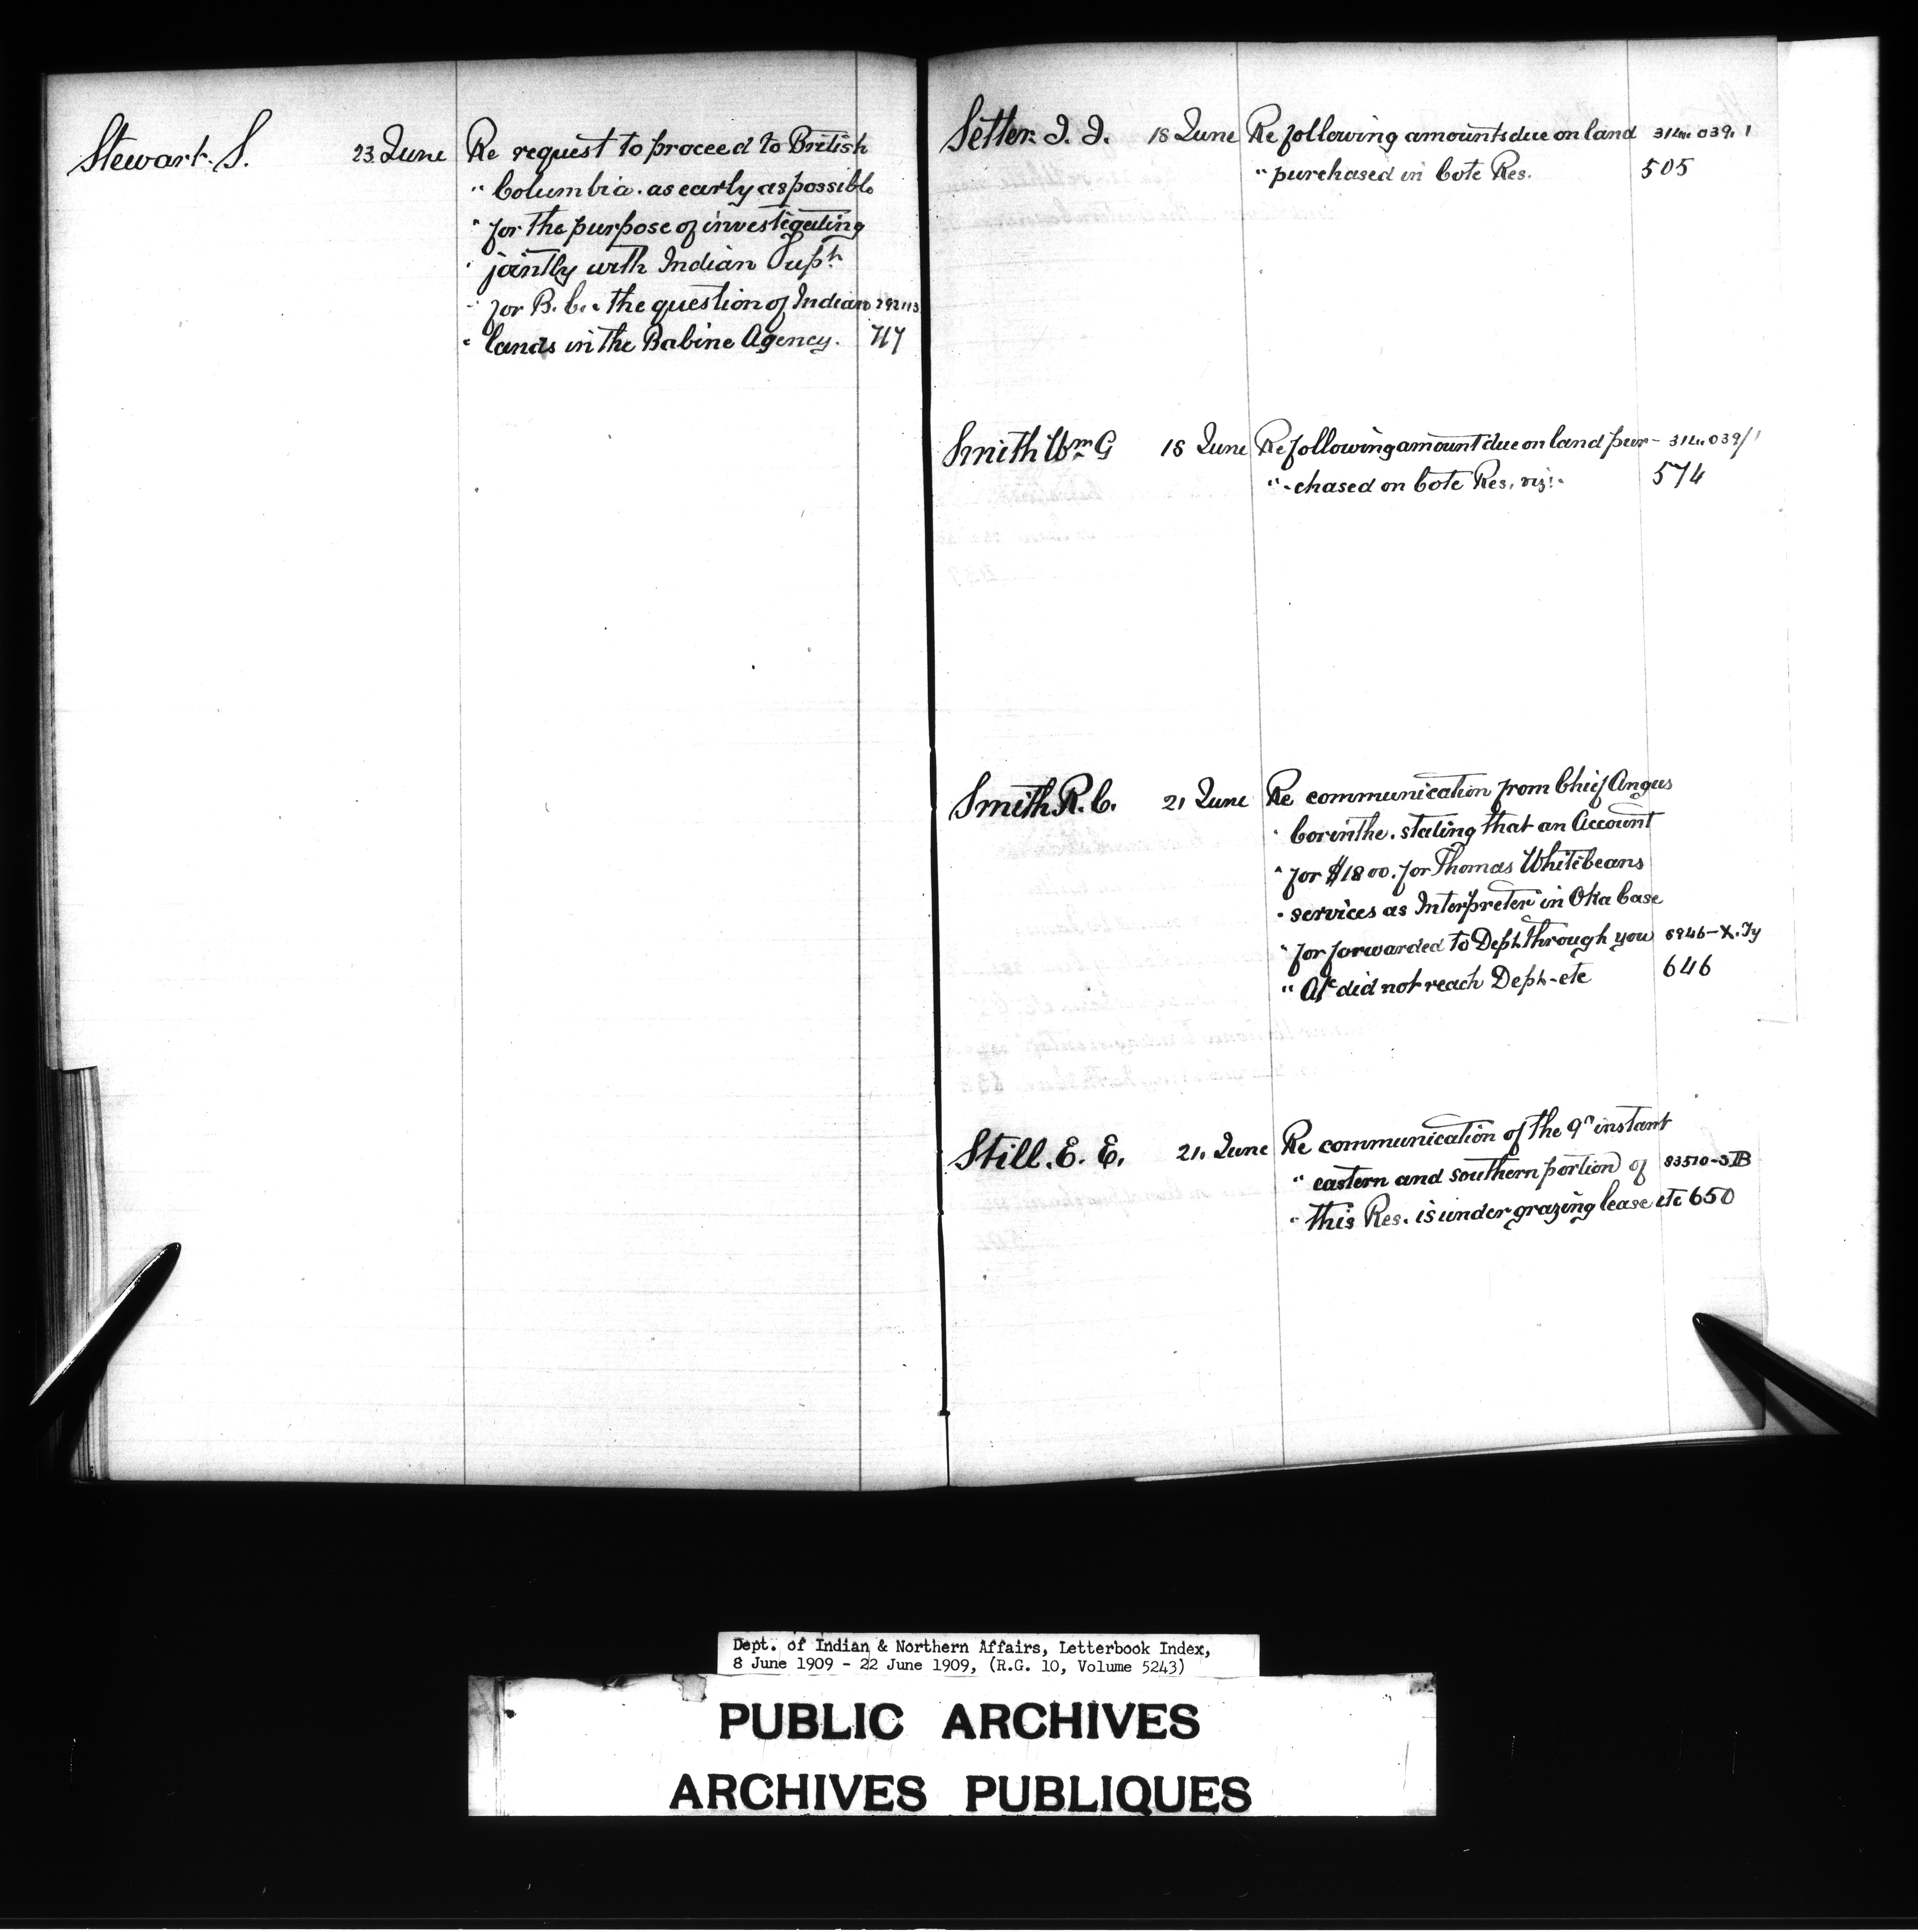 Stewart. S. 23 June Re request to proceed to British
" Columbia. as early as possible
" for the purpose of investigating
" jointly with Indian Supt.
" for B.C. the question of Indian 292113
" lands in the Babine Agency. 717
Setter. J. J. 18 June Re following amounts due on land 314.039.1
" purchased in Cote Res. 505
Smith Wm G 18 June Re following amount due on land pur- 314.039/1
" -chased on Cote Res, viz:- 574
Smith R. C. 21 June Re communication from Chief Angus
" Corinthe. stating that an Account
" for $18 00. for Thomas Whitebeans
" services as Interpreter in Oka Case
" for forwarded to Dept. through you
" A/c did not reach Dept.-etc 646
Still. E. E. 21. June Re communication of the 9th instant
" eastern and southern portion of 83510-3
" this Res. is under grazing lease etc 650
Dept. of Indian & Northern Affairs, Letterbook Index,
8 June 1909 - 22 June 1909, (R.G. 10, Volume 5243)
PUBLIC ARCHIVES
ARCHIVES PUBLIQUES